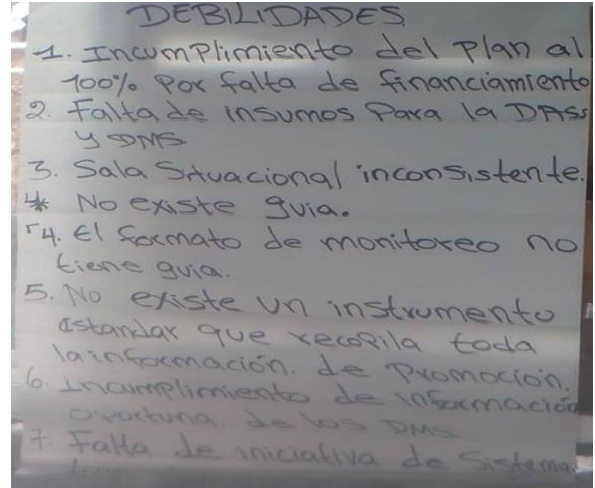 DEBILIDADES
1. Incumplimiento del Plan al
100% Por falta de financiamiento
2. Falta de insumos Para la DASS
y DMS
3. Sala Situacional inconsistente.
* No existe guia.
4. El formato de monitoreo no
tiene guia.
5. No existe un instrumento
estandar que recopila toda
la información. de Promoción.
6. Incumplimiento de información
oportuna. de los DMS
7. Falta de iniciativa de Sistema